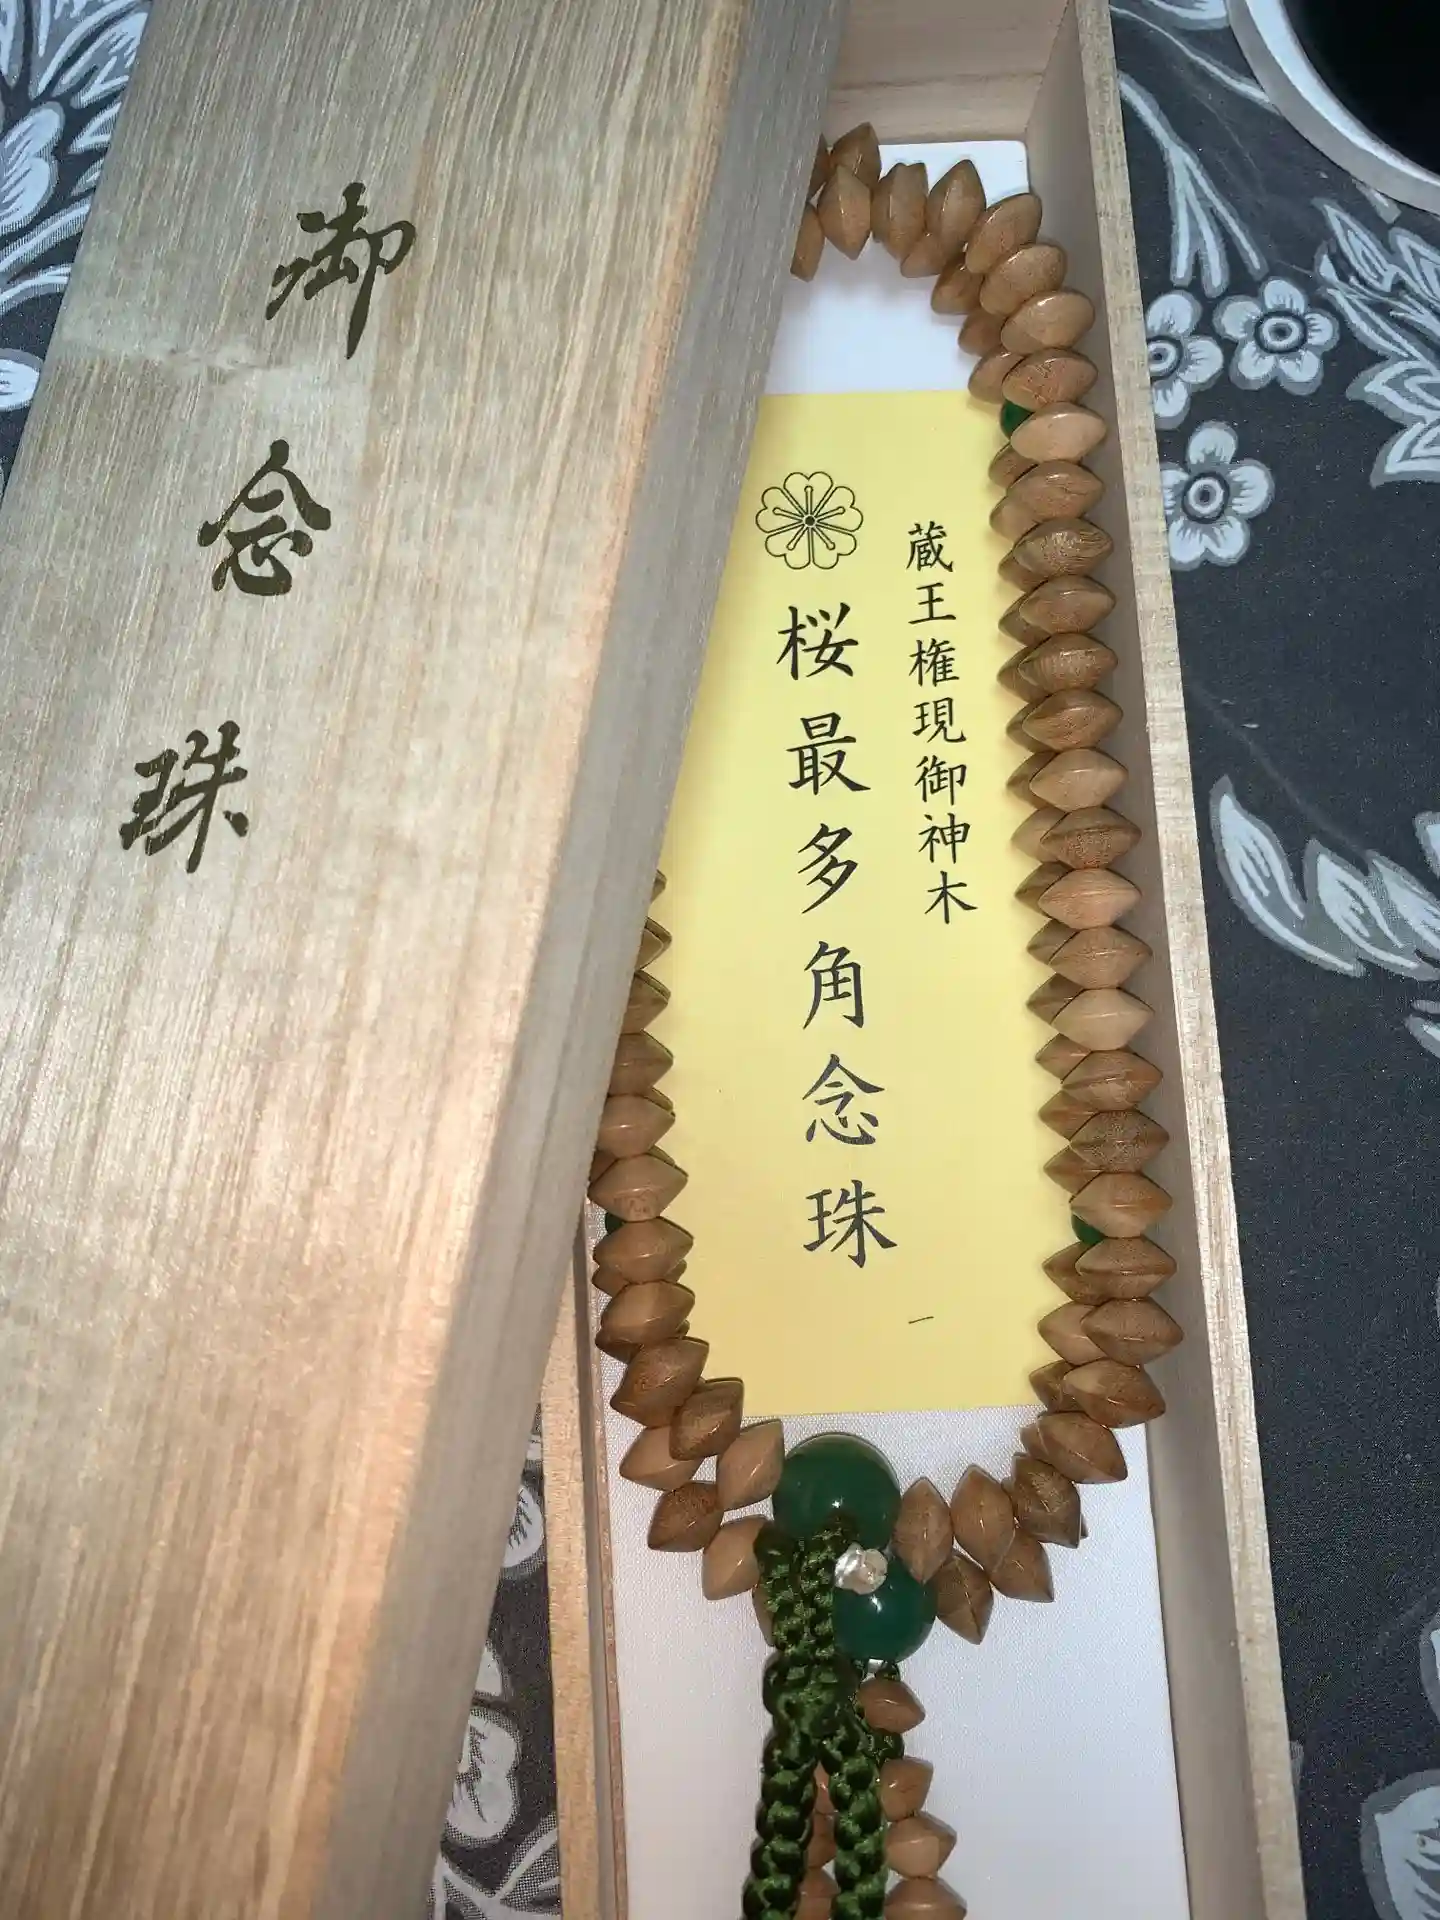 御念珠
蔵王権現御神木
桜最多角念珠